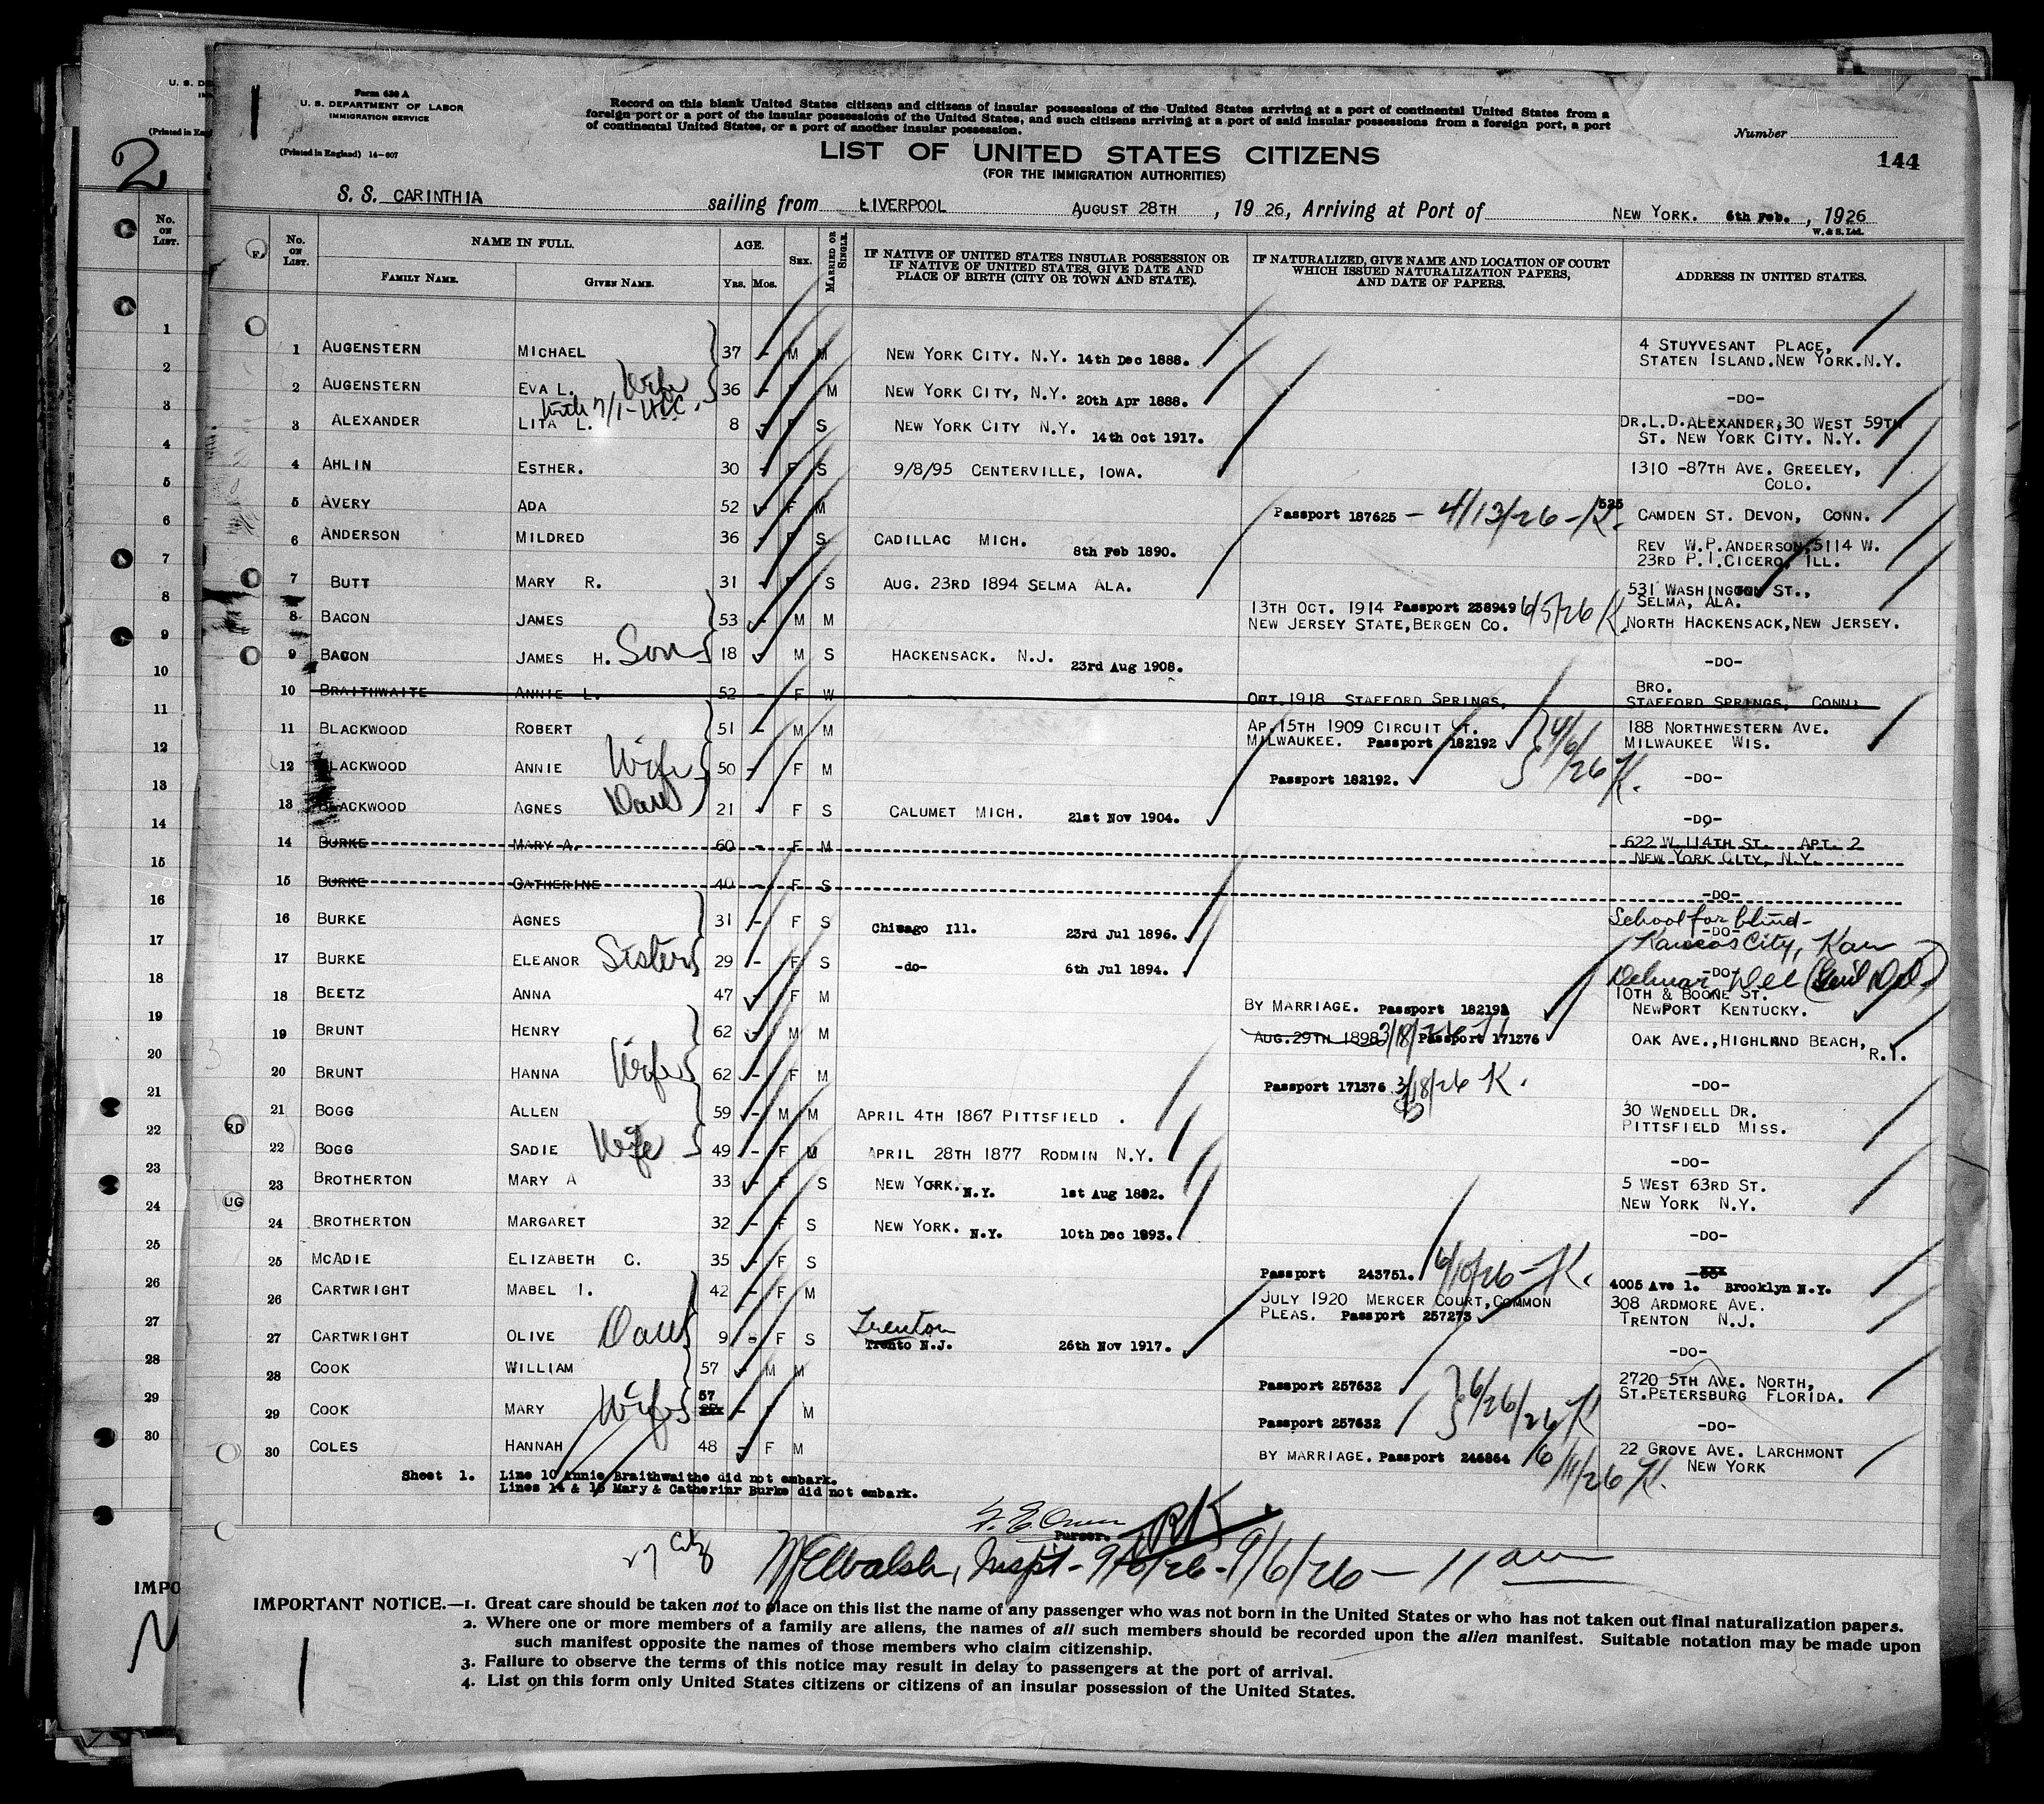 Form 630 A
U. S. DEPARTMENT OF LABOR
IMMIGRATION SERVICE
(Printed in England) 14-607
Record on this blank United States citizens and citizens of insular possessions of the United States arriving at a port of continental United States from a
foreign port or a port of the insular possessions of the United States, and such citizens arriving at a port of said insular possessions from a foreign port, a port
of continental United States, or a port of another insular possession.
Number
LIST OF UNITED STATES CITIZENS
(FOR THE IMMIGRATION AUTHORITIES)
144
S. S. CARINTHIA sailing from LIVERPOOL AUGUST 28TH, 1926, Arriving at Port of NEW YORK. 6th Feb., 1926
W. & S. Ltd.
No. ON LIST. NAME IN FULL. FAMILY NAME. GIVEN NAME. AGE. YRS. MOS. SEX. MARRIED OR SINGLE. IF NATIVE OF UNITED STATES INSULAR POSSESSION OR IF NATIVE OF UNITED STATES, GIVE DATE AND PLACE OF BIRTH (CITY OR TOWN AND STATE). IF NATURALIZED, GIVE NAME AND LOCATION OF COURT WHICH ISSUED NATURALIZATION PAPERS, AND DATE OF PAPERS. ADDRESS IN UNITED STATES.
1 AUGENSTERN MICHAEL 37 - M M NEW YORK CITY. N.Y. 14th Dec 1888. 4 STUYVESANT PLACE, STATEN ISLAND.NEW YORK.N.Y.
2 AUGENSTERN EVA L. Wife 36 - F M NEW YORK CITY, N.Y. 20th Apr 1888. -DO-
3 ALEXANDER LITA L. 8 - F S NEW YORK CITY N.Y. 14th Oct 1917. DR.L.D.ALEXANDER,30 WEST 59TH ST. NEW YORK CITY. N.Y.
4 AHLIN ESTHER. 30 - F S 9/8/95 CENTERVILLE, IOWA. 1310 -87TH AVE. GREELEY, COLO.
5 AVERY ADA 52 - F M Passport 187625 - 4/13/26 - K. 525 CAMDEN ST. DEVON, CONN.
6 ANDERSON MILDRED 36 - F S CADILLAC MICH. 8th Feb 1890. REV W.P.ANDERSON,5114 W. 23RD P.I.CICERO, ILL.
7 BUTT MARY R. 31 - F S AUG. 23RD 1894 SELMA ALA. 531 WASHINGTON ST., SELMA, ALA.
8 BACON JAMES 53 - M M 13TH OCT. 1914 Passport 238949 6/5/26 K. NEW JERSEY STATE,BERGEN CO. NORTH HACKENSACK,NEW JERSEY.
9 BACON JAMES H. Son 18 - M S HACKENSACK. N.J. 23rd Aug 1908. -DO-
10 BRAITHWAITE ANNIE L. 52 - F W OCT.1918 STAFFORD SPRINGS, BRO. STAFFORD SPRINGS, CONN:
11 BLACKWOOD ROBERT 51 - M M AP.15TH 1909 CIRCUIT CT. MILWAUKEE. Passport 182192 4/6/26 K. 188 NORTHWESTERN AVE. MILWAUKEE WIS.
12 BLACKWOOD ANNIE Wife 50 - F M Passport 182192. -DO-
13 BLACKWOOD AGNES Dau 21 - F S CALUMET MICH. 21st Nov 1904. -DO-
14 BURKE MARY A. 60 - F M 622 W.114TH ST. APT. 2 NEW YORK CITY, N.Y.
15 BURKE CATHERINE 40 - F S -DO-
16 BURKE AGNES 31 - F S Chicago Ill. 23rd Jul 1896. -DO- School for blind- Kansas City, Kan
17 BURKE ELEANOR Sister 29 - F S -do- 6th Jul 1894. -DO- Delmar Del (Genl Del.)
18 BEETZ ANNA 47 - F M BY MARRIAGE. Passport 182192 10TH & BOONE ST. NEWPORT KENTUCKY.
19 BRUNT HENRY 62 - M M AUG.29TH 1898 3/18/26 Passport 171376 OAK AVE.,HIGHLAND BEACH, R.I.
20 BRUNT HANNA Wife 62 - F M Passport 171376 3/18/26 K. -DO-
21 BOGG ALLEN 59 - M M APRIL 4TH 1867 PITTSFIELD . 30 WENDELL DR. PITTSFIELD MISS.
22 BOGG SADIE Wife 49 - F M APRIL 28TH 1877 RODMIN N.Y. -DO-
23 BROTHERTON MARY A 33 - F S NEW YORK. N.Y. 1st Aug 1892. 5 WEST 63RD ST. NEW YORK N.Y.
24 BROTHERTON MARGARET 32 - F S NEW YORK. N.Y. 10th Dec 1893. -DO-
25 MCADIE ELIZABETH C. 35 - F S Passport 243751. 6/10/26 - K. 4005 Ave I. Brooklyn N.Y.
26 CARTWRIGHT MABEL I. 42 - F M JULY 1920 MERCER COURT,COMMON PLEAS. Passport 257273 308 ARDMORE AVE. TRENTON N.J.
27 CARTWRIGHT OLIVE Dau 9 - F S Trenton Trento N.J. 26th Nov 1917. -DO-
28 COOK WILLIAM 57 - M M Passport 257632 2720 5TH AVE. NORTH, ST.PETERSBURG FLORIDA.
29 COOK MARY Wife 57 - F M Passport 257632 6/26/26 K -DO-
30 COLES HANNAH 48 - F M BY MARRIAGE. Passport 246864 6/11/26 K. 22 GROVE AVE. LARCHMONT NEW YORK
Sheet 1. Line 10 Annie Braithwaithe did not embark.
Lines 14 & 15 Mary & Catherinr Burke did not embark.
Purser. RK
27 City
Walsh, Inspt - 9/6/26 - 9/6/26 - 11 am
IMPORTANT NOTICE.—1. Great care should be taken not to place on this list the name of any passenger who was not born in the United States or who has not taken out final naturalization papers.
2. Where one or more members of a family are aliens, the names of all such members should be recorded upon the alien manifest. Suitable notation may be made upon
such manifest opposite the names of those members who claim citizenship.
3. Failure to observe the terms of this notice may result in delay to passengers at the port of arrival.
4. List on this form only United States citizens or citizens of an insular possession of the United States.